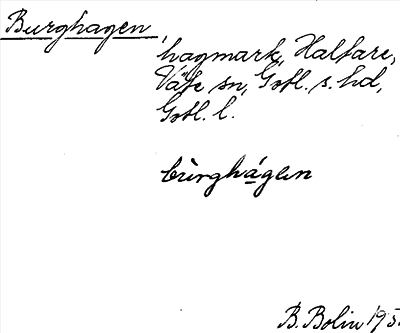 Burghagen,
hagmark, Hallfare,
Väte sn, Gotl. s. hd,
Gotl. l.
bùrghágen
B. Bolin 195